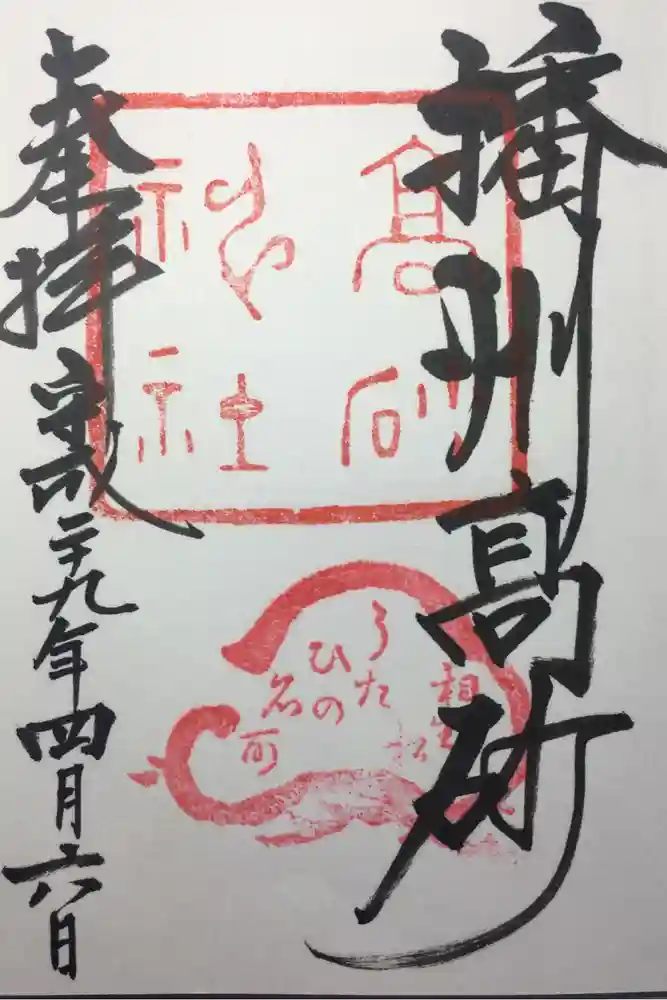 播州高砂
高砂
神社
相生松
うた
ひの
名所
奉拝
平成二十九年四月六日